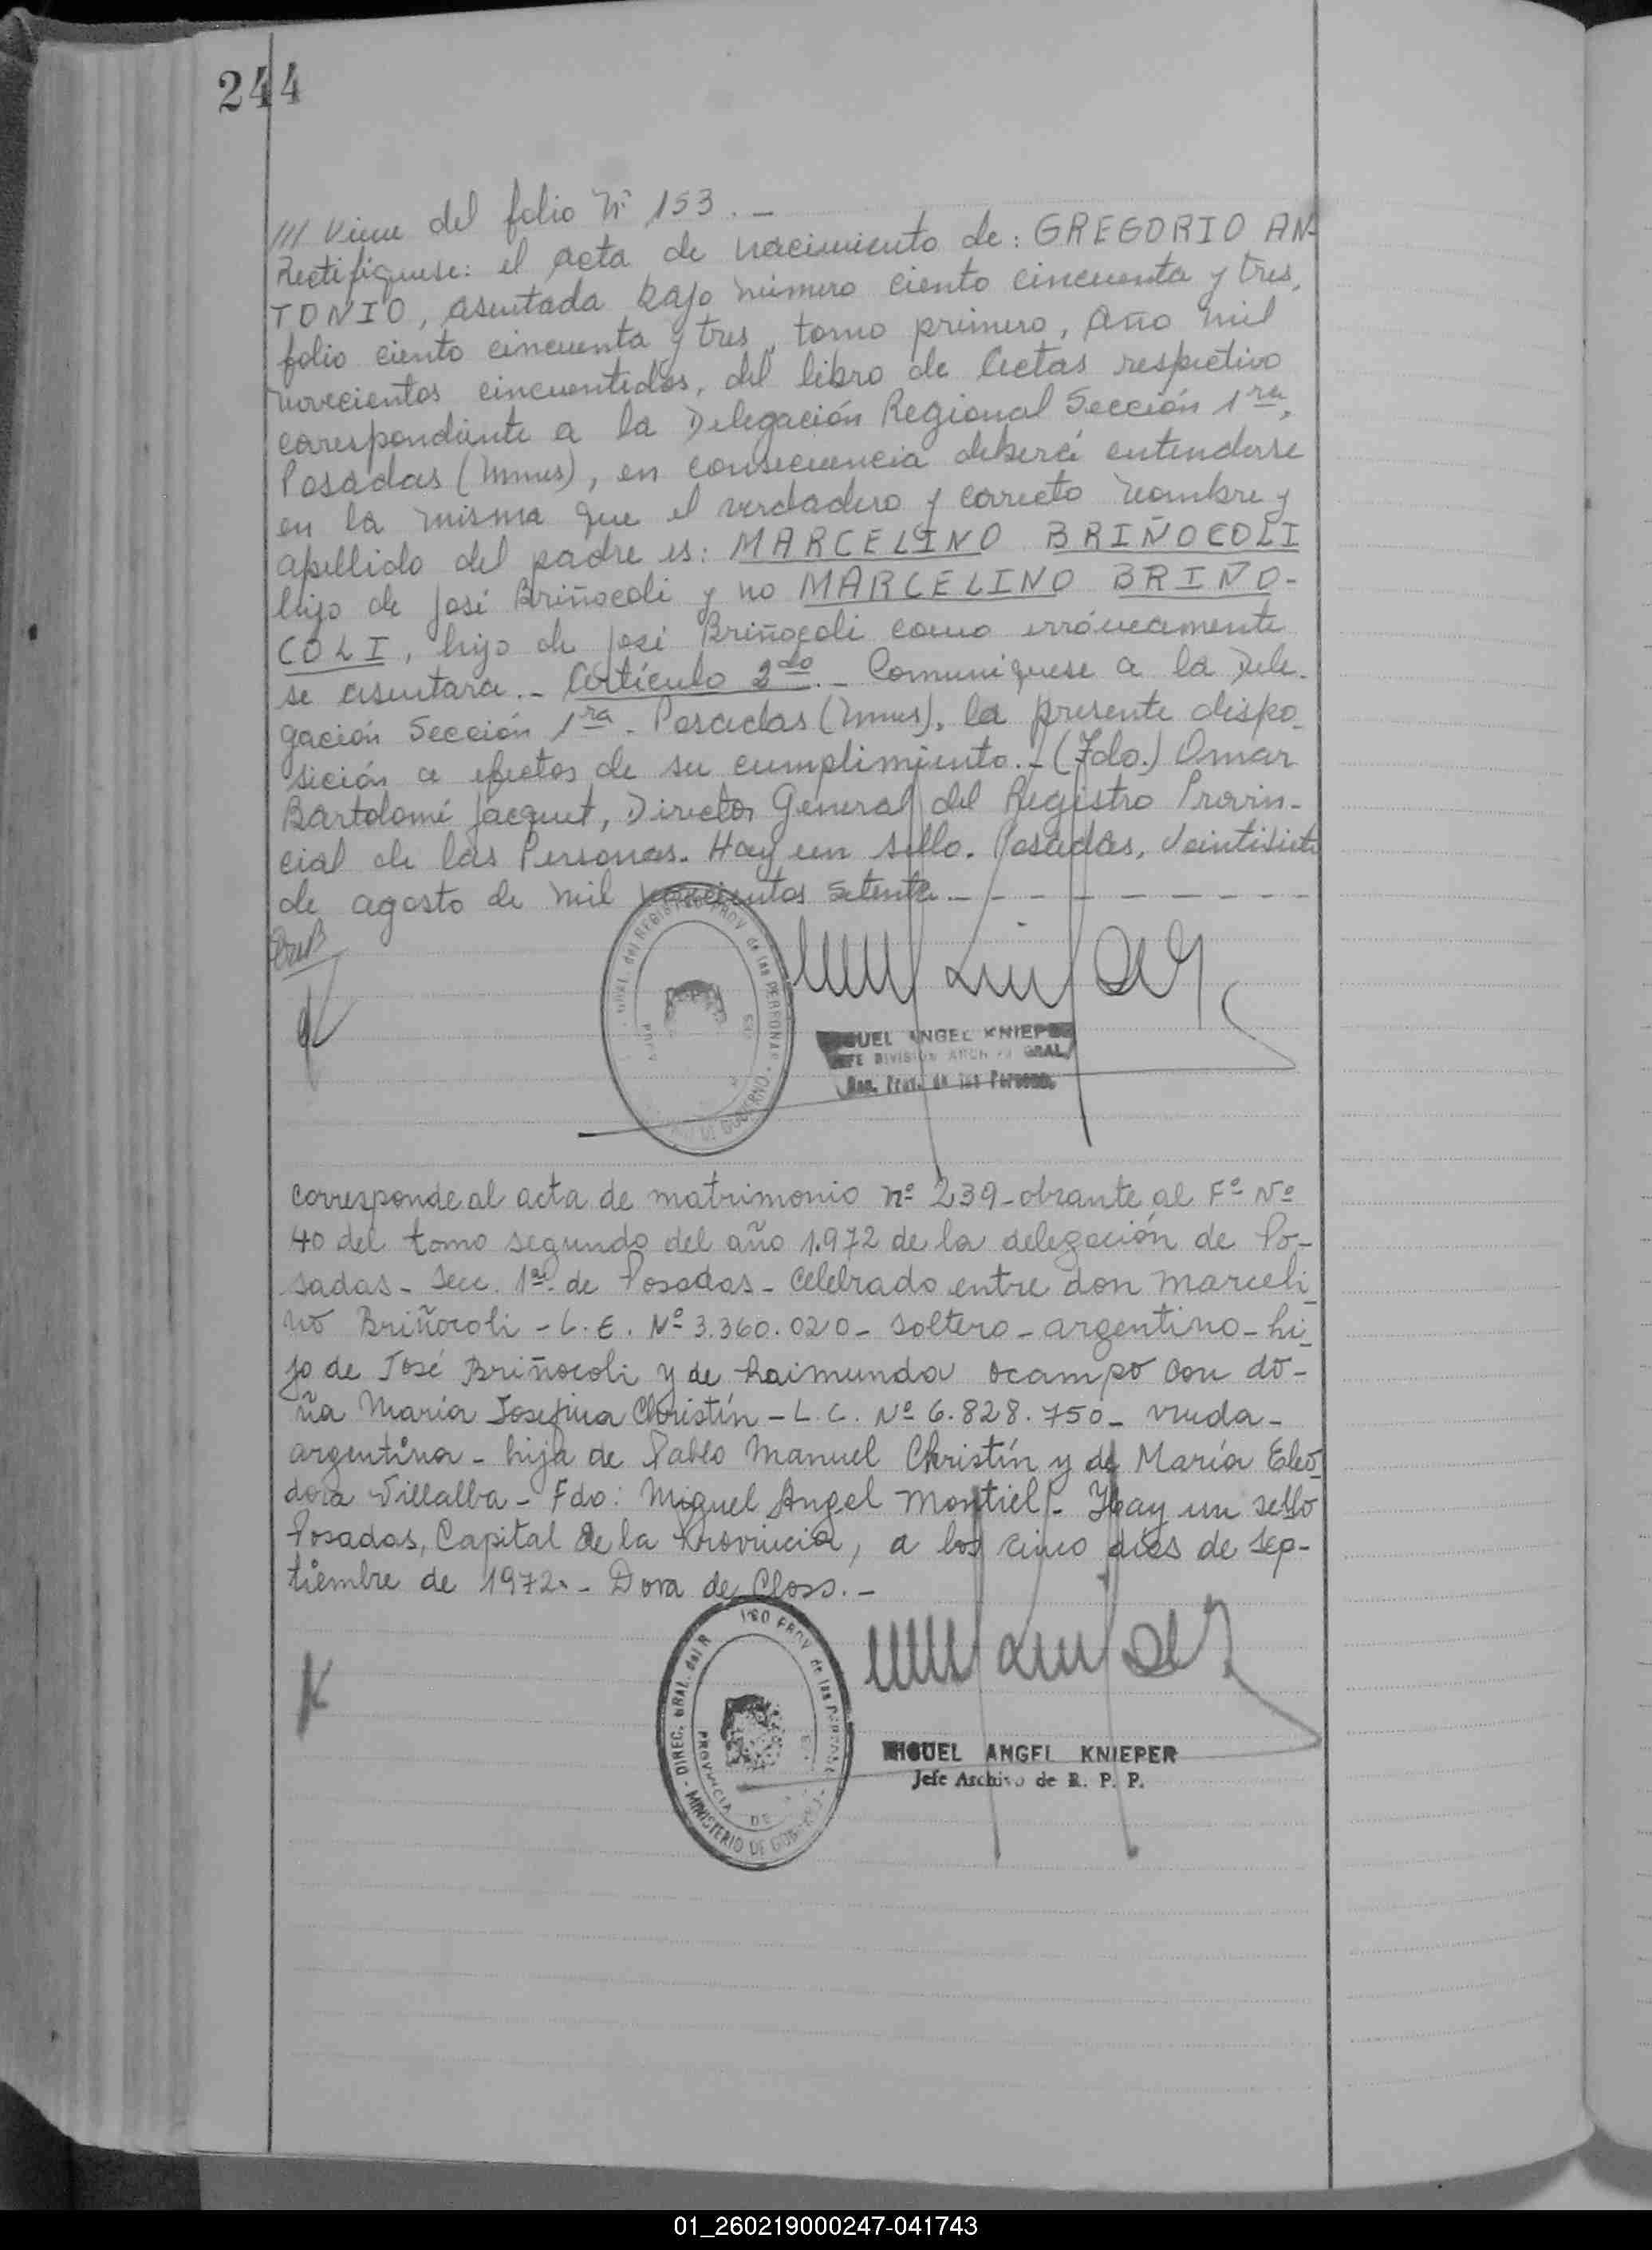 244
/// Viene del folio Nº 153.-
Rectifíquese: el acta de nacimiento de: GREGORIO AN-
TONIO, asentada bajo número ciento cincuenta y tres,
folio ciento cincuenta y tres, tomo primero, Año mil
novecientos cincuentidós, del libro de Actas respectivo
correspondiente a la Delegación Regional Sección 1ra,
Posadas (Mnes), en consecuencia deberá entenderse
en la misma que el verdadero y correcto nombre y
apellido del padre es: MARCELINO BRIÑOCOLI
hijo de José Briñocoli y no MARCELINO BRIÑO-
COLI, hijo de José Briñocoli como erróneamente
se asentara.- Artículo 2do.- Comuníquese a la Dele-
gación Sección 1ra. Posadas (Mnes), la presente dispo-
sición a efectos de su cumplimiento.- (Fdo.) Omar
Bartolomé Jacquet, Director General del Registro Provin-
cial de las Personas. Hay un sello. Posadas, Veintisiete
de agosto de mil novecientos setenta - - - - - - -
GRAL. del REGISTRO PROV de las PERSONAS - GOBIERNO
MIGUEL ANGEL KNIEPER
JEFE DIVISION ARCHIVO GRAL.
Reg. Prov. de las Personas
Corresponde al acta de matrimonio nº 239 - obrante al Fº Nº
40 del tomo segundo del año 1.972 de la delegación de Po-
sadas - Secc. 1ra. de Posadas - Celebrado entre don Marceli-
no Briñocoli - L.E. Nº 3.360.020 - soltero - argentino - hi-
jo de José Briñocoli y de Raimunda Ocampo con do-
ña María Josefina Christín - L.C. Nº 6.828.750 - viuda -
argentina - hija de Pablo Manuel Christín y de María Eleo-
dora Villalba - Fdo: Miguel Angel Montiel - Hay un sello
Posadas, Capital de la Provincia, a los cinco días de Sep-
tiembre de 1972.- Dora de Closs.-
DIREC. GRAL. del R ISO PROV de las PERSONAS - MINISTERIO DE GOBIERNO -
PROVINCIA DE
MIGUEL ANGEL KNIEPER
Jefe Archivo de R. P. P.
01_260219000247-041743